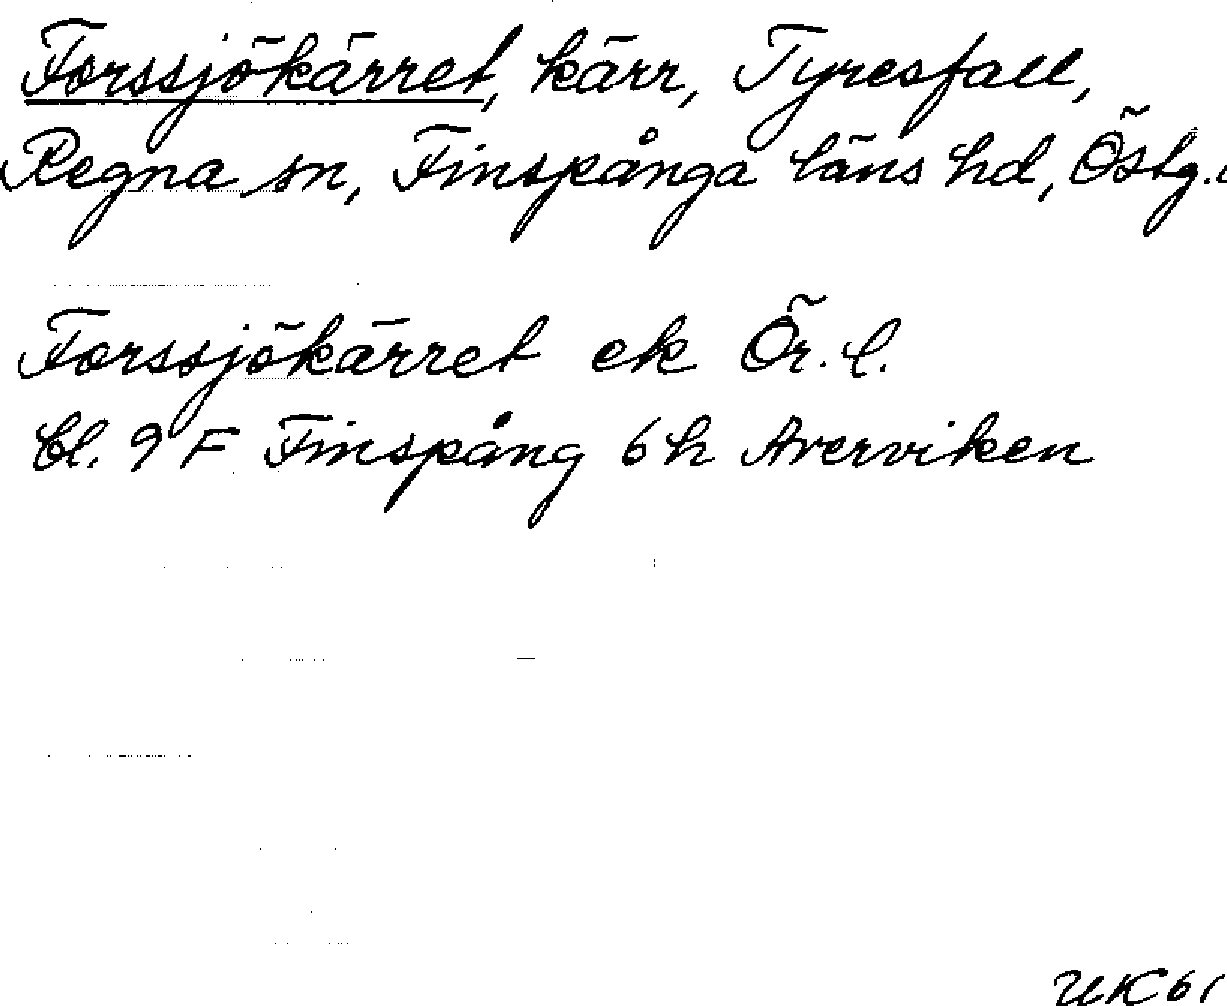 Forssjökärret, kärr, Tyresfall,
Regna sn, Finspånga läns hd, Östg.
Forssjökärret ek Ör. l.
bl. 9 F Finspång 6 h Averviken
UK 61